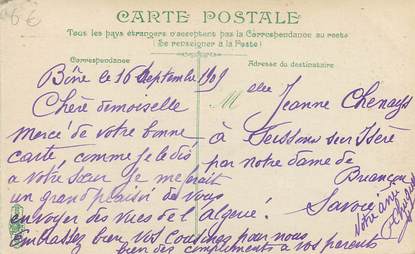 6 €
CARTE POSTALE
Tous les pays étrangers n'acceptent pas la Correspondance au recto
(Se renseigner à la Poste)
Correspondance
Adresse du destinataire
Bône le 16 Septembre 1909
Chère demoiselle
Mercé de votre bonne
carte, comme je le dis
a votre sœur je me ferait
un grand plaisir de vous
envoyer des vues de l'algerie!
Embrassez bien vos cousines pour nous
bien des compliments a vos parents
Melle Jeanne Chenays
à Feissons sur Isère
par notre dame de
Briançon
Savoie
Votre amie